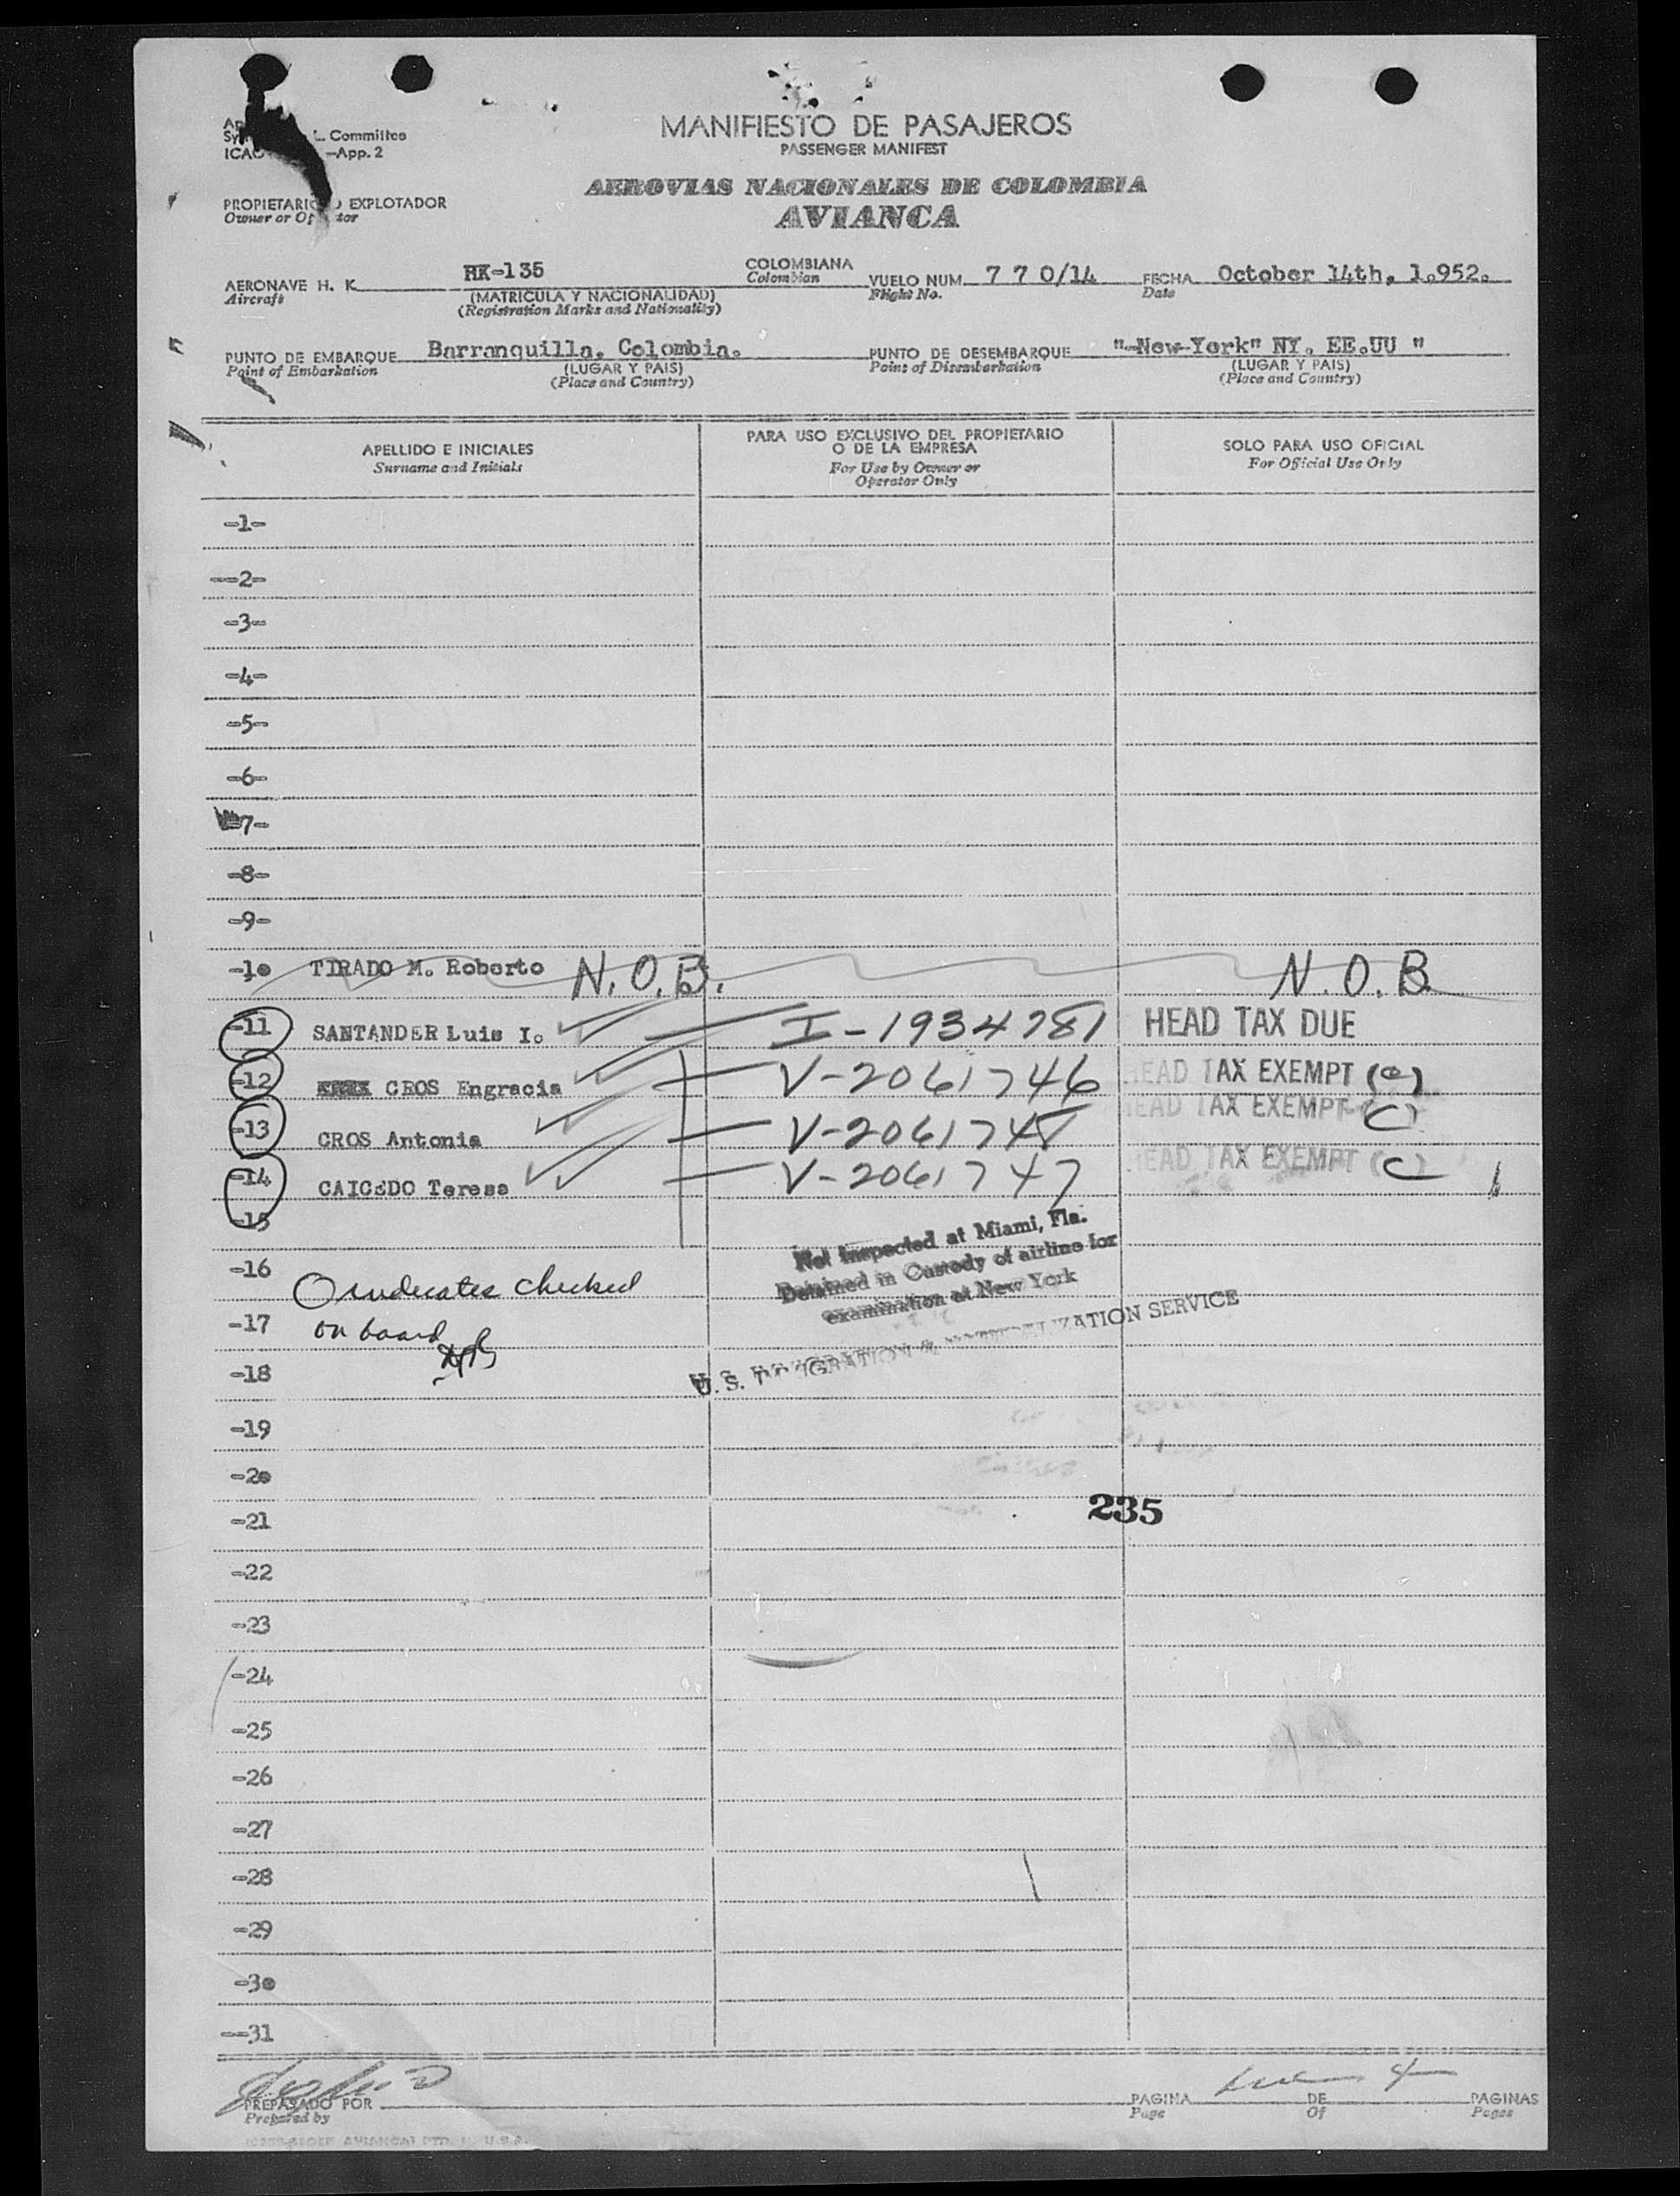 L. Committee
ICAO —App. 2
MANIFIESTO DE PASAJEROS
PASSENGER MANIFEST
AEROVIAS NACIONALES DE COLOMBIA
AVIANCA
PROPIETARIO O EXPLOTADOR
Owner or Operator
AERONAVE H. K. HK-135 COLOMBIANA VUELO NUM. 7 7 0/14 FECHA October 14th, 1.952.
Aircraft (MATRICULA Y NACIONALIDAD) Colombian Flight No. Date
(Registration Marks and Nationality)
PUNTO DE EMBARQUE Barranquilla, Colombia. PUNTO DE DESEMBARQUE "-New-York" NY. EE.UU "
Point of Embarkation (LUGAR Y PAIS) Point of Disembarkation (LUGAR Y PAIS)
(Place and Country) (Place and Country)
APELLIDO E INICIALES PARA USO EXCLUSIVO DEL PROPIETARIO O DE LA EMPRESA SOLO PARA USO OFICIAL
Surname and Initials For Use by Owner or Operator Only For Official Use Only
-1-
--2-
-3-
-4-
-5-
-6-
-7-
-8-
-9-
-10 TIRADO M. Roberto N.O.B. N.O.B.
-11 SANTANDER Luis I. I-1934781 HEAD TAX DUE
-12 CROS Engracia V-2061746 HEAD TAX EXEMPT (C)
-13 CROS Antonia V-2061748 HEAD TAX EXEMPT (C)
-14 CAICEDO Teresa V-2061747 HEAD TAX EXEMPT (C)
-15
Not Inspected at Miami, Fla.
Detained in Custody of airline for
examination at New York
U. S. IMMIGRATION & NATURALIZATION SERVICE
-16 O indicates checked
-17 on board
-18
-19
-20
235
-21
-22
-23
-24
-25
-26
-27
-28
-29
-30
--31
PREPARADO POR PAGINA DE 4 PAGINAS
Prepared by Page Of Pages